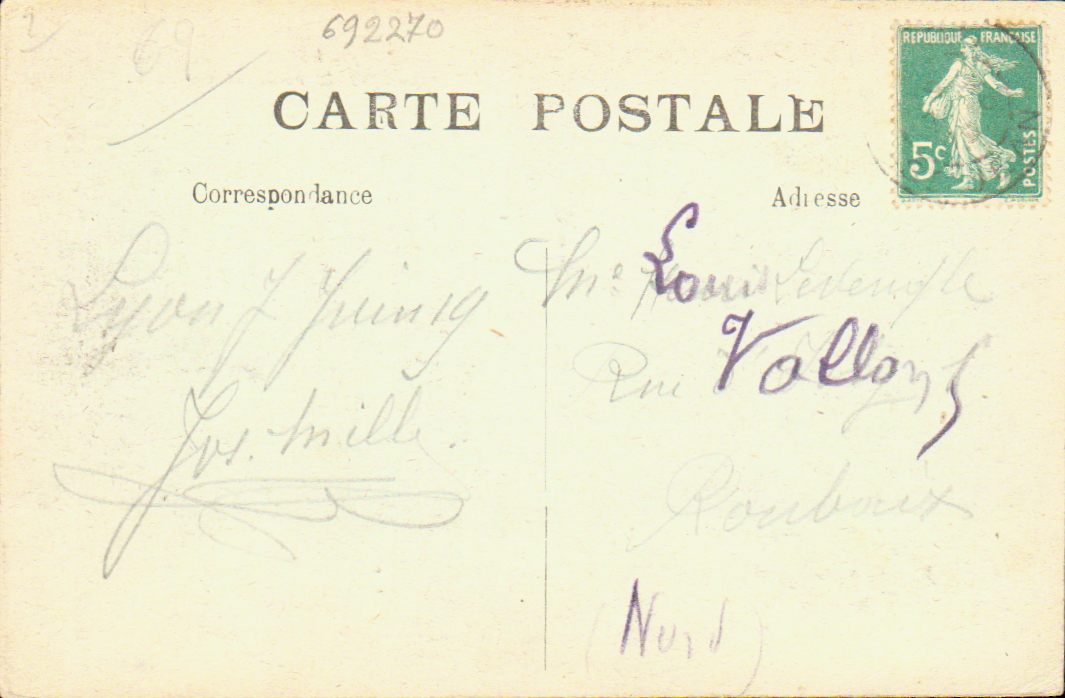 69
692270
CARTE POSTALE
REPUBLIQUE FRANÇAISE
5c
POSTES
Correspondance
Adresse
Lyon 7 Juin 19
Jos. Mille.
Me Louis
Rue Vallon
Roubaix
(Nord)